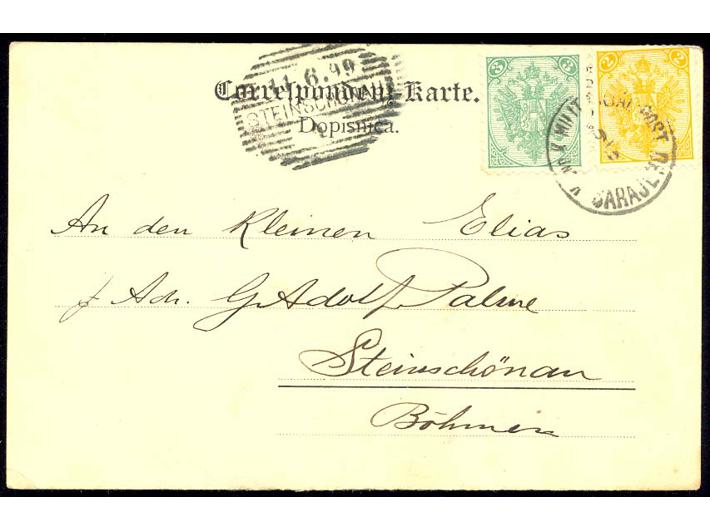 11.6.99
STEINSCHÖNAU
Correspondenz-Karte.
Dopisnica.
3 3
2 2
K. UND K. MILIT. POST
SARAJEVO
An den kleinen Elias
Adr. G. Adolf Palme
Steinschönau
Böhmen